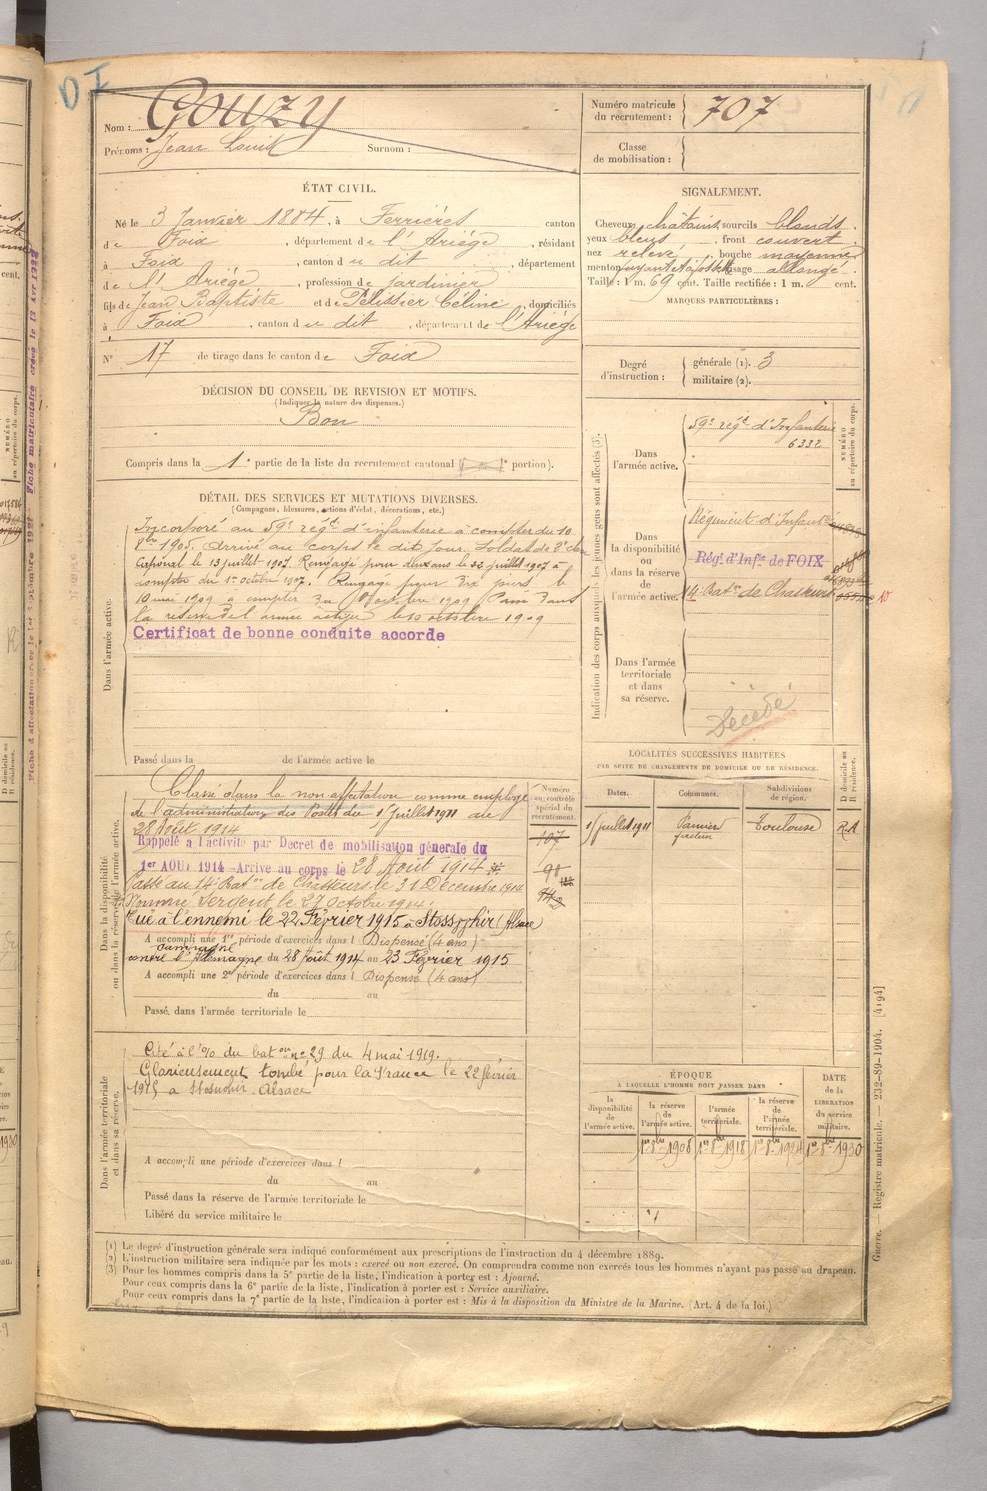 Nom : Gouzy
Prénoms : Jean Louis Surnom :
Numéro matricule du recrutement : 707
Classe de mobilisation :
ÉTAT CIVIL.
Né le 3 Janvier 1884, à Ferrières canton
de Foix, département de l'Ariège, résidant
à Foix, canton du dit, département
de l'Ariège, profession de jardinier
fils de Jean Baptiste et de Pélissier Céline, domiciliés
à Foix, canton du dit, département de l'Ariège
N° 17 de tirage dans le canton de Foix
SIGNALEMENT.
Cheveux châtains, sourcils blonds.
yeux bleus, front couvert
nez relevé, bouche moyenne
menton visage allongé.
Taille : 1 m. 69 cent. Taille rectifiée : 1 m. cent.
MARQUES PARTICULIÈRES :
Degré d'instruction : générale (1). 3
militaire (2).
DÉCISION DU CONSEIL DE REVISION ET MOTIFS.
(Indiquer la nature des dispenses.)
Bon
Compris dans la 1e partie de la liste du recrutement cantonal ( portion).
DÉTAIL DES SERVICES ET MUTATIONS DIVERSES.
(Campagnes, blessures, actions d'éclat, décorations, etc.)
Dans l'armée active.
Incorporé au 59e régt d'infanterie à compter du 10
8bre 1905. Arrivé au corps le dit jour. Soldat de 2e cl
Caporal le 13 juillet 1907. Rengagé pour deux ans le 22 juillet 1907 à
compter du 1er octobre 1907. Rengagé pour le
10 mai 1909 à compter octobre 1909 Passé dans
la réserve de l'armée active le 10 octobre 1909
Certificat de bonne conduite accordé
Passé dans la de l'armée active le
Indication des corps auxquels les jeunes gens sont affectés (3).
NUMÉRO au répertoire du corps.
Dans l'armée active.
59e régt d'Infanterie
6332
Dans la disponibilité ou dans la réserve de l'armée active.
Régiment d'Infant
Rég. d'Infie de FOIX
14e Baton de Chasseurs
Dans l'armée territoriale et dans sa réserve.
Décédé
Dans la disponibilité ou dans la réserve de l'armée active.
Classé dans la non affectation comme employé
de l'administration des Postes du 1 Juillet 1911 au
28 Août 1914
Rappelé à l'activité par Décret de mobilisation générale du
1er AOUT 1914 - Arrivé au corps le 28 Août 1914
Passé au 14e Baton de Chasseurs le 31 Décembre 1914
Nommé Sergent le 27 Octobre 1914.
Tué à l'ennemi le 22 Février 1915 à (Alsace)
A accompli une 1re période d'exercices dans l Dispensé (4 ans)
Campagne
contre l'Allemagne du 28 Août 1914 au 23 Février 1915
A accompli une 2e période d'exercices dans l Dispensé (4 ans)
du au
Passé dans l'armée territoriale le
Numéro au contrôle spécial du recrutement.
107
98
LOCALITÉS SUCCESSIVES HABITÉES
PAR SUITE DE CHANGEMENTS DE DOMICILE OU DE RÉSIDENCE.
Dates. Communes. Subdivisions de région. D domicile ou R résidence.
1 Juillet 1911 Pamiers facteur Toulouse R.A
Dans l'armée territoriale et dans sa réserve.
Cité à l'o/o du baton n° 29 du 4 mai 1919.
Glorieusement tombé pour la France le 22 février
1915 à Alsace
A accompli une période d'exercices dans l
du au
Passé dans la réserve de l'armée territoriale le
Libéré du service militaire le
ÉPOQUE
À LAQUELLE L'HOMME DOIT PASSER DANS
la disponibilité de l'armée active. la réserve de l'armée active. l'armée territoriale. la réserve de l'armée territoriale.
DATE de la LIBÉRATION du service militaire.
1er 8bre 1908 1er 8bre 1918 1er 8bre 1924 1er 8bre 1930
(1) Le degré d'instruction générale sera indiqué conformément aux prescriptions de l'instruction du 4 décembre 1889.
(2) L'instruction militaire sera indiquée par les mots : exercé ou non exercé. On comprendra comme non exercés tous les hommes n'ayant pas passé au drapeau.
(3) Pour les hommes compris dans la 5e partie de la liste, l'indication à porter est : Ajourné.
Pour ceux compris dans la 6e partie de la liste, l'indication à porter est : Service auxiliaire.
Pour ceux compris dans la 7e partie de la liste, l'indication à porter est : Mis à la disposition du Ministre de la Marine. (Art. 4 de la loi.)
Guerre. — Registre matricule. — 232-89-1904. [4194]